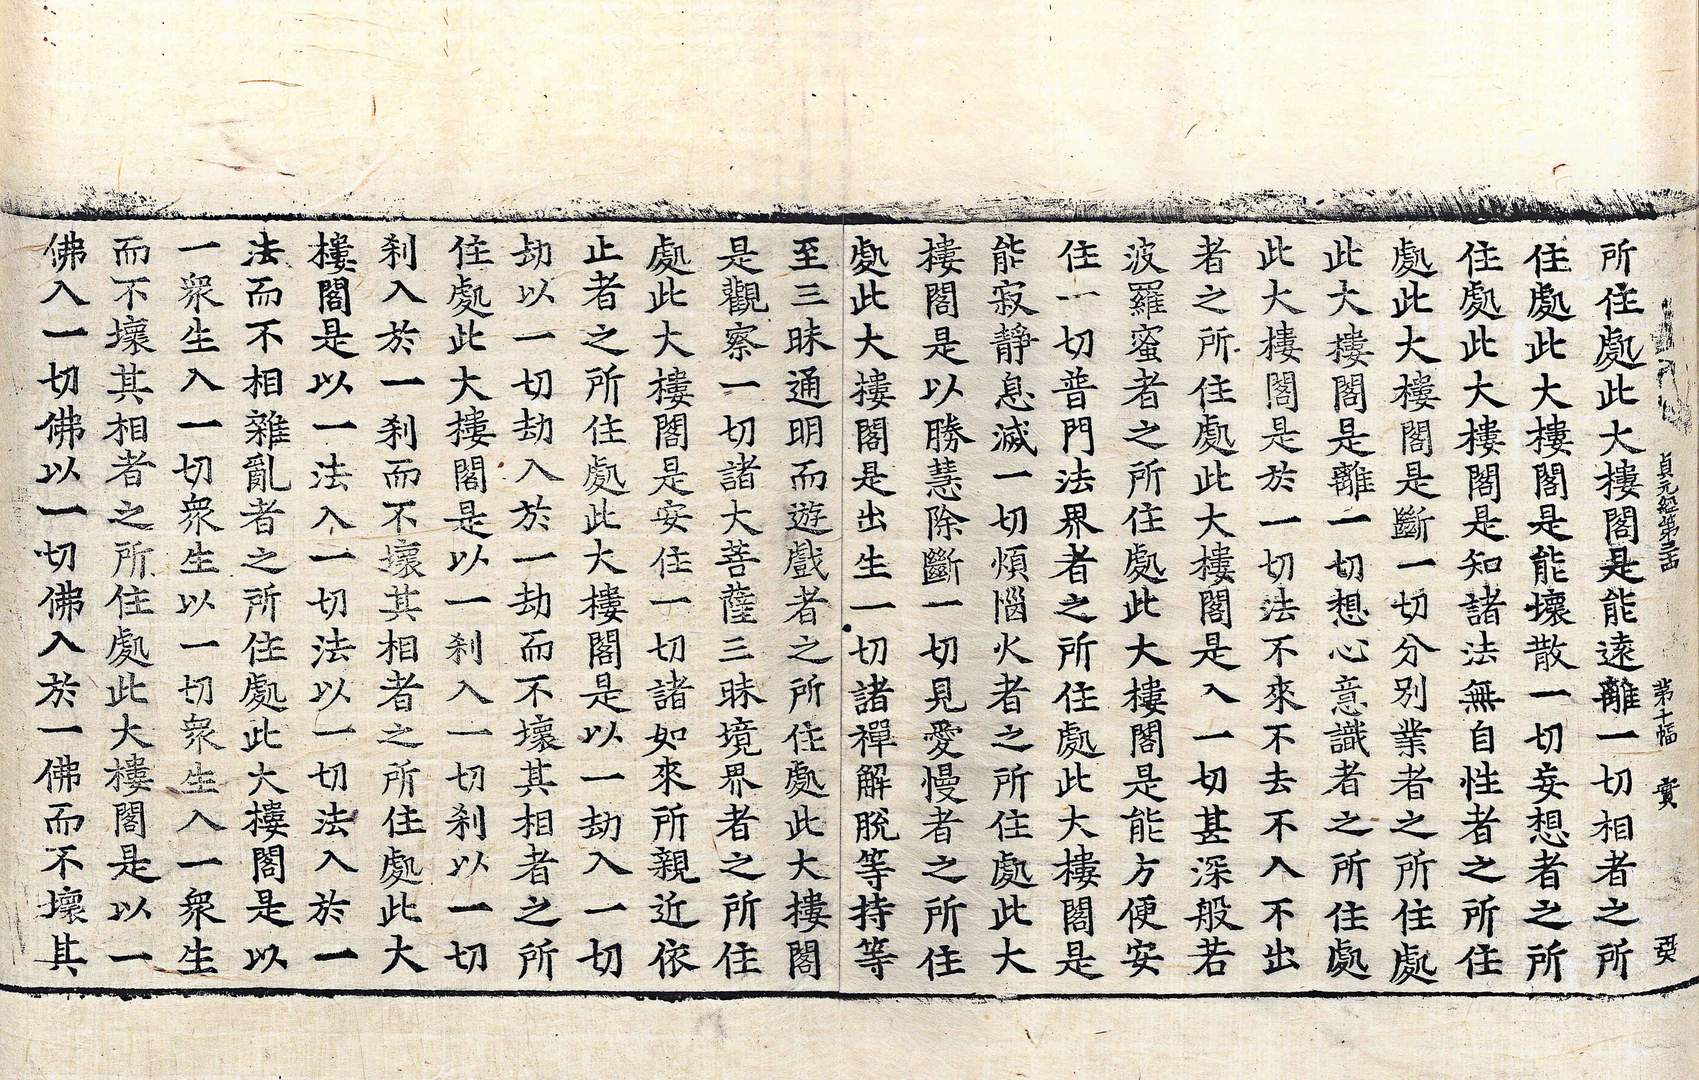 貞元經第 第十幅 實
所住處此大樓閣是能遠離一切相者之所
住處此大樓閣是能壞散一切妄想者之所
住處此大樓閣是知諸法無自性者之所住
處此大樓閣是斷一切分別業者之所住處
此大樓閣是離一切想心意識者之所住處
此大樓閣是於一切法不來不去不入不出
者之所住處此大樓閣是入一切甚深般若
波羅蜜者之所住處此大樓閣是能方便安
住一切普門法界者之所住處此大樓閣是
能寂靜息滅一切煩惱火者之所住處此大
樓閣是以勝慧除斷一切見愛慢者之所住
處此大樓閣是出生一切諸禪解脫等持等
至三昧通明而遊戲者之所住處此大樓閣
是觀察一切諸大菩薩三昧境界者之所住
處此大樓閣是安住一切諸如來所親近依
止者之所住處此大樓閣是以一劫入一切
劫以一切劫入於一劫而不壞其相者之所
住處此大樓閣是以一刹入一切刹以一切
刹入於一刹而不壞其相者之所住處此大
樓閣是以一法入一切法以一切法入於一
法而不相雜亂者之所住處此大樓閣是以
一衆生入一切衆生以一切衆生入一衆生
而不壞其相者之所住處此大樓閣是以一
佛入一切佛以一切佛入於一佛而不壞其